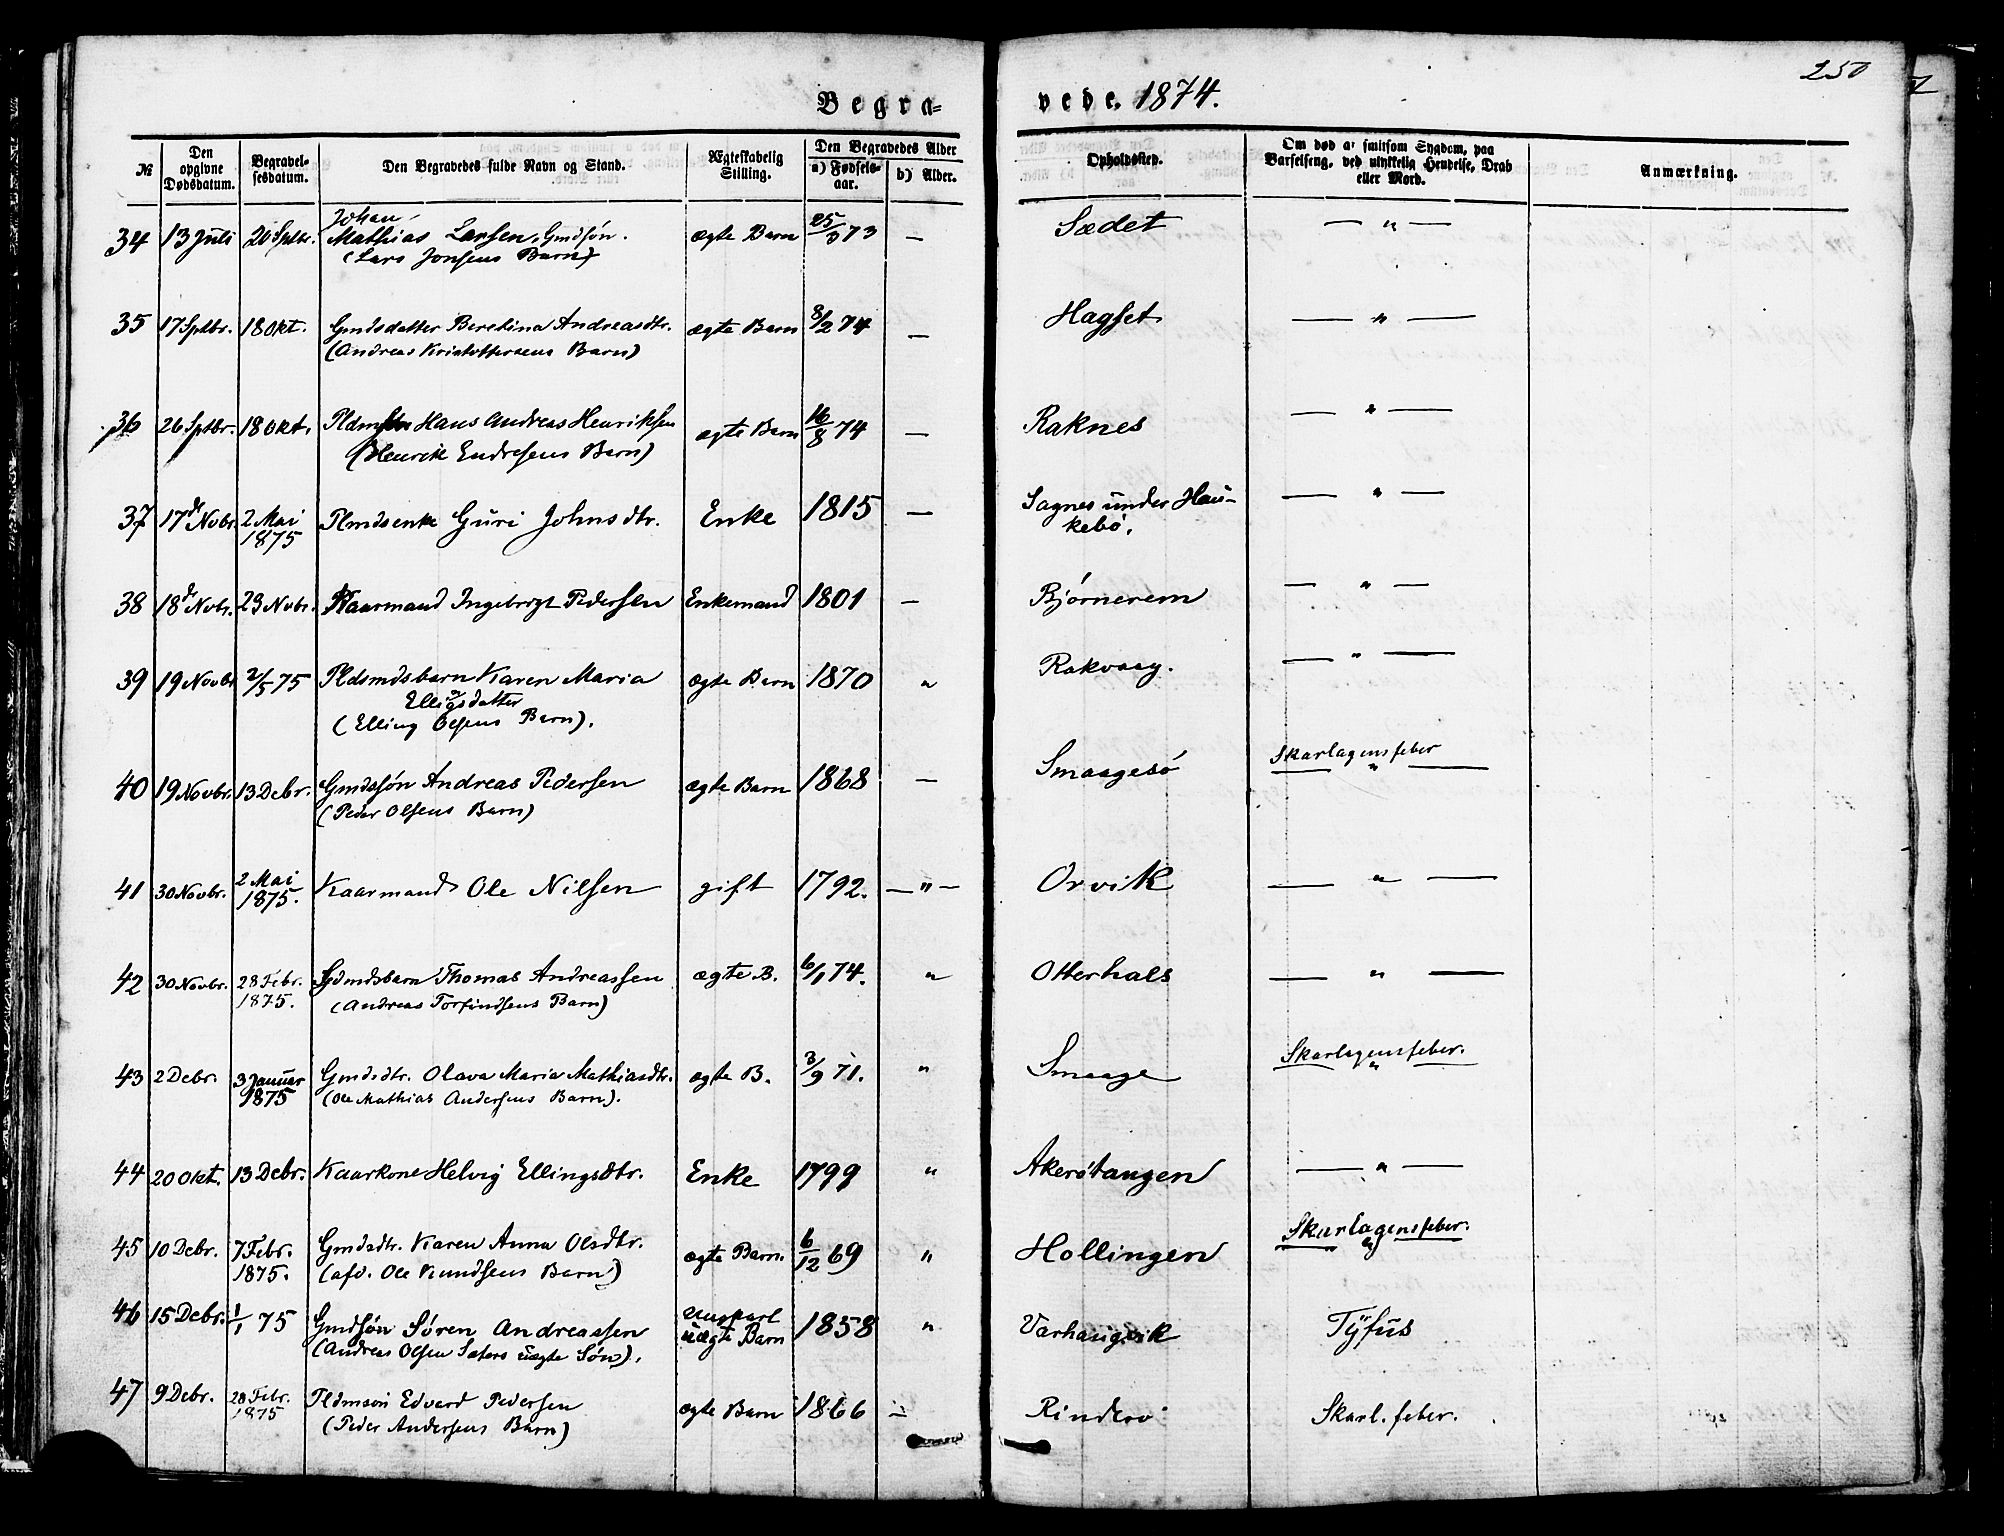 250
Begra-
vede. 1874.
No
Den opgivne Dødsdatum.
Begravelsesdatum.
Den Begravedes fulde Navn og Stand.
Ægteskabelig Stilling.
Den Begravedes Alder
a) Fødselsaar.
b) Alder.
Opholdssted.
Om død af smitsom Sygdom, paa Barselseng, ved ulykkelig Hendelse, Drab eller Mord.
Anmærkning.
34 13 Juli 20 Sptbr. Johan Mathias Larsen, Gmdsøn. ægte Barn 25/9 73 — Sædet — " —
(Lars Jonsens Barn)
35 17 Sptbr. 18 Okt. Gmdsdatter Beretina Andreasdtr. ægte Barn 8/2 74 — Hagset — " —
(Andreas Kristoffersens Barn)
36 26 Sptbr. 18 Okt. Hans Andreas Henriksen ægte Barn 16/8 74 — Raknes — " —
(Henrik Endresens Barn)
37 17de Novbr. 2 Mai 1875 Plmdsenke Guri Johnsdtr. Enke 1815 — Sagnes under Hau-
kebø. — " —
38 18de Novbr. 29 Novbr. Kaarmand Ingebrigt Pedersen Enkemand 1801 — Bjørnerem — " —
39 19 Novbr. 2/5 75 Pldsmdsbarn Karen Maria ægte Barn 1870 " Rakvaag. — " —
Ellingsdatter
(Elling Olsens Barn).
40 19 Novbr. 13 Debr. Gmdssøn Andreas Pedersen ægte Barn 1868 — Smaagesø Skarlagensfeber
(Peder Olsens Barn) — " —
41 30 Novbr. 2 Mai 1875. Kaarmand Ole Nilsen gift 1792. — " — Orvik — " —
42 30 Novbr. 28 Febr. 1875. Thomas Andreassen ægte B. 6/1 74. " Otterhals — " —
(Andreas Torfindsens Barn)
43 2 Debr. 3 Januar 1875 Gmdsdtr. Olava Maria Mathiasdtr. ægte B. 3/9 71. " Smaage Skarlagensfeber.
(Ole Mathias Andersens Barn). — " —
44 20 Okt. 13 Debr. Kaarkone Helvig Ellingsdtr. Enke 1799 " Akerøtangen — " —
45 10 Debr. 7 Febr. 1875. Gmdsdtr. Karen Anna Olsdtr. ægte Barn. 6/12 69 " Hollingen Skarlagensfeber.
(afd. Ole Knudsens Barn) — " —
46 15 Debr. 1/1 75 Gmdsøn Søren Andreassen Ungkarl uægte Barn 1858 " Varhaugvik Tyfus
(Andreas Olsen Sæters uægte Søn).
47 9 Debr. 28 Febr. 1875 Pldmsøn Edvard Pedersen ægte Barn 1866 — Rinderø Skarl. feber.
(Peder Andersens Barn)